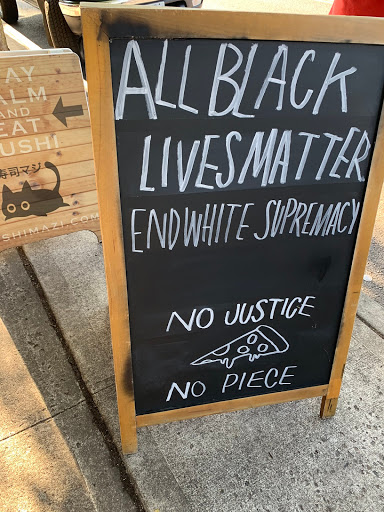 ALL BLACK
LIVES MATTER
END WHITE SUPREMACY
NO JUSTICE
NO PIECE
CALM
AND
EAT
SUSHI
寿司マジ
SHIMAZI.COM